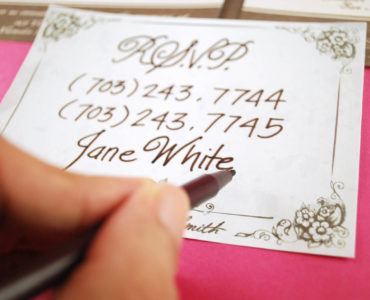 R.S.V.P.
(703) 243.7744
(703) 243.7745
Jane White